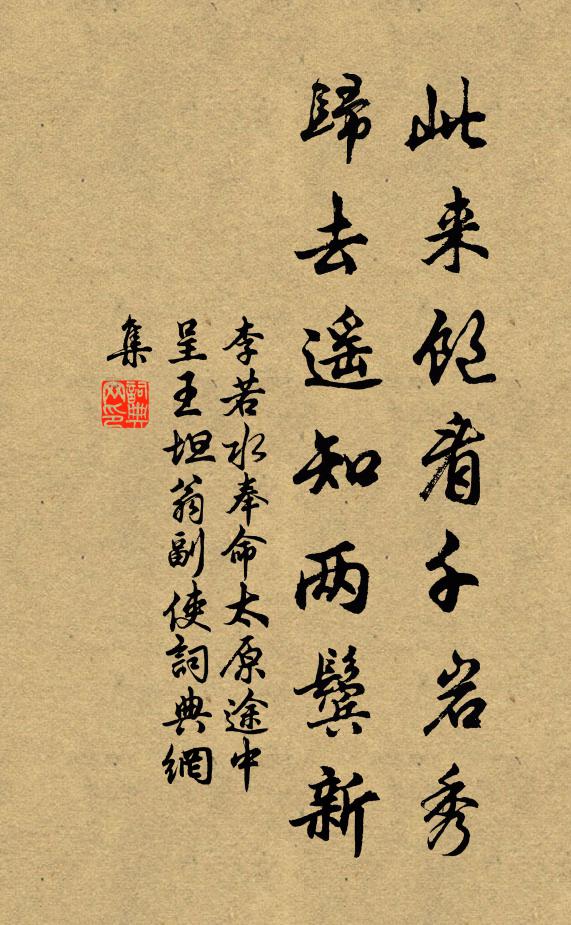 此来饱看千岩秀
歸去遥知两鬓新
李若水奉命太原途中
呈王坦翁副使詞典網
集
詞典
网印